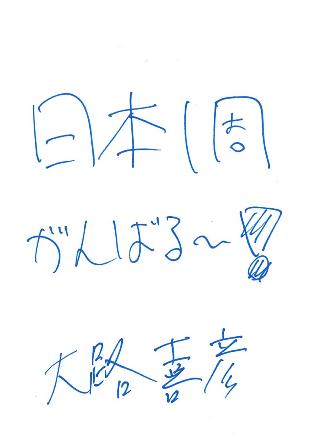 日本1周
がんばる～!
大路喜彦